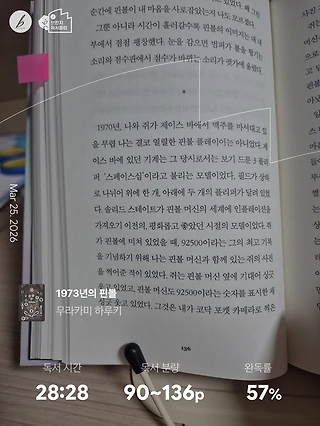 한번지
독서클럽
순간에 핀볼이 내 마음을 사로잡았는지 나도 모르겠다.
그뿐 아니라 시간이 흘러갈수록 핀볼의 이미지는 내 내
부에서 점점 팽창했다. 눈을 감으면 범퍼가 볼을 튕기는
소리와 점수판에서 점수가 바뀌는 소리가 귓가에 울렸다.
1970년, 나와 쥐가 제이스 바에서 맥주를 마셔대고 있
을 무렵 나는 결코 열렬한 핀볼 플레이어는 아니었다. 제
이스 바에 있던 기계는 그 당시로서는 보기 드문 3플리
퍼 '스페이스십'이라고 불리는 모델이었다. 필드가 상하
로 나뉘어 위에 한 개, 아래에 두 개의 플리퍼가 달려 있었
다. 솔리드 스테이트가 핀볼 머신의 세계에 인플레이션을
가져오기 이전의, 평화롭고 좋았던 시절의 모델이었다. 쥐
가 핀볼에 미쳐 있었을 때, 92500이라는 그의 최고 기록
을 기념하기 위해 나는 쥐와 핀볼 머신과 함께 있는 쥐의 사진
을 찍어준 적이 있었다. 쥐는 핀볼 머신 옆에 기대어 싱긋
웃고 있었고, 핀볼 머신도 92500이라는 숫자를 표시한 채
싱긋 웃고 있었다. 그것은 내가 코닥 포켓 카메라로 찍은
136
Mar 25, 2026
1973년의 핀볼
무라카미 하루키
독서 시간
독서 분량
완독률
28:28
90~136p
57%